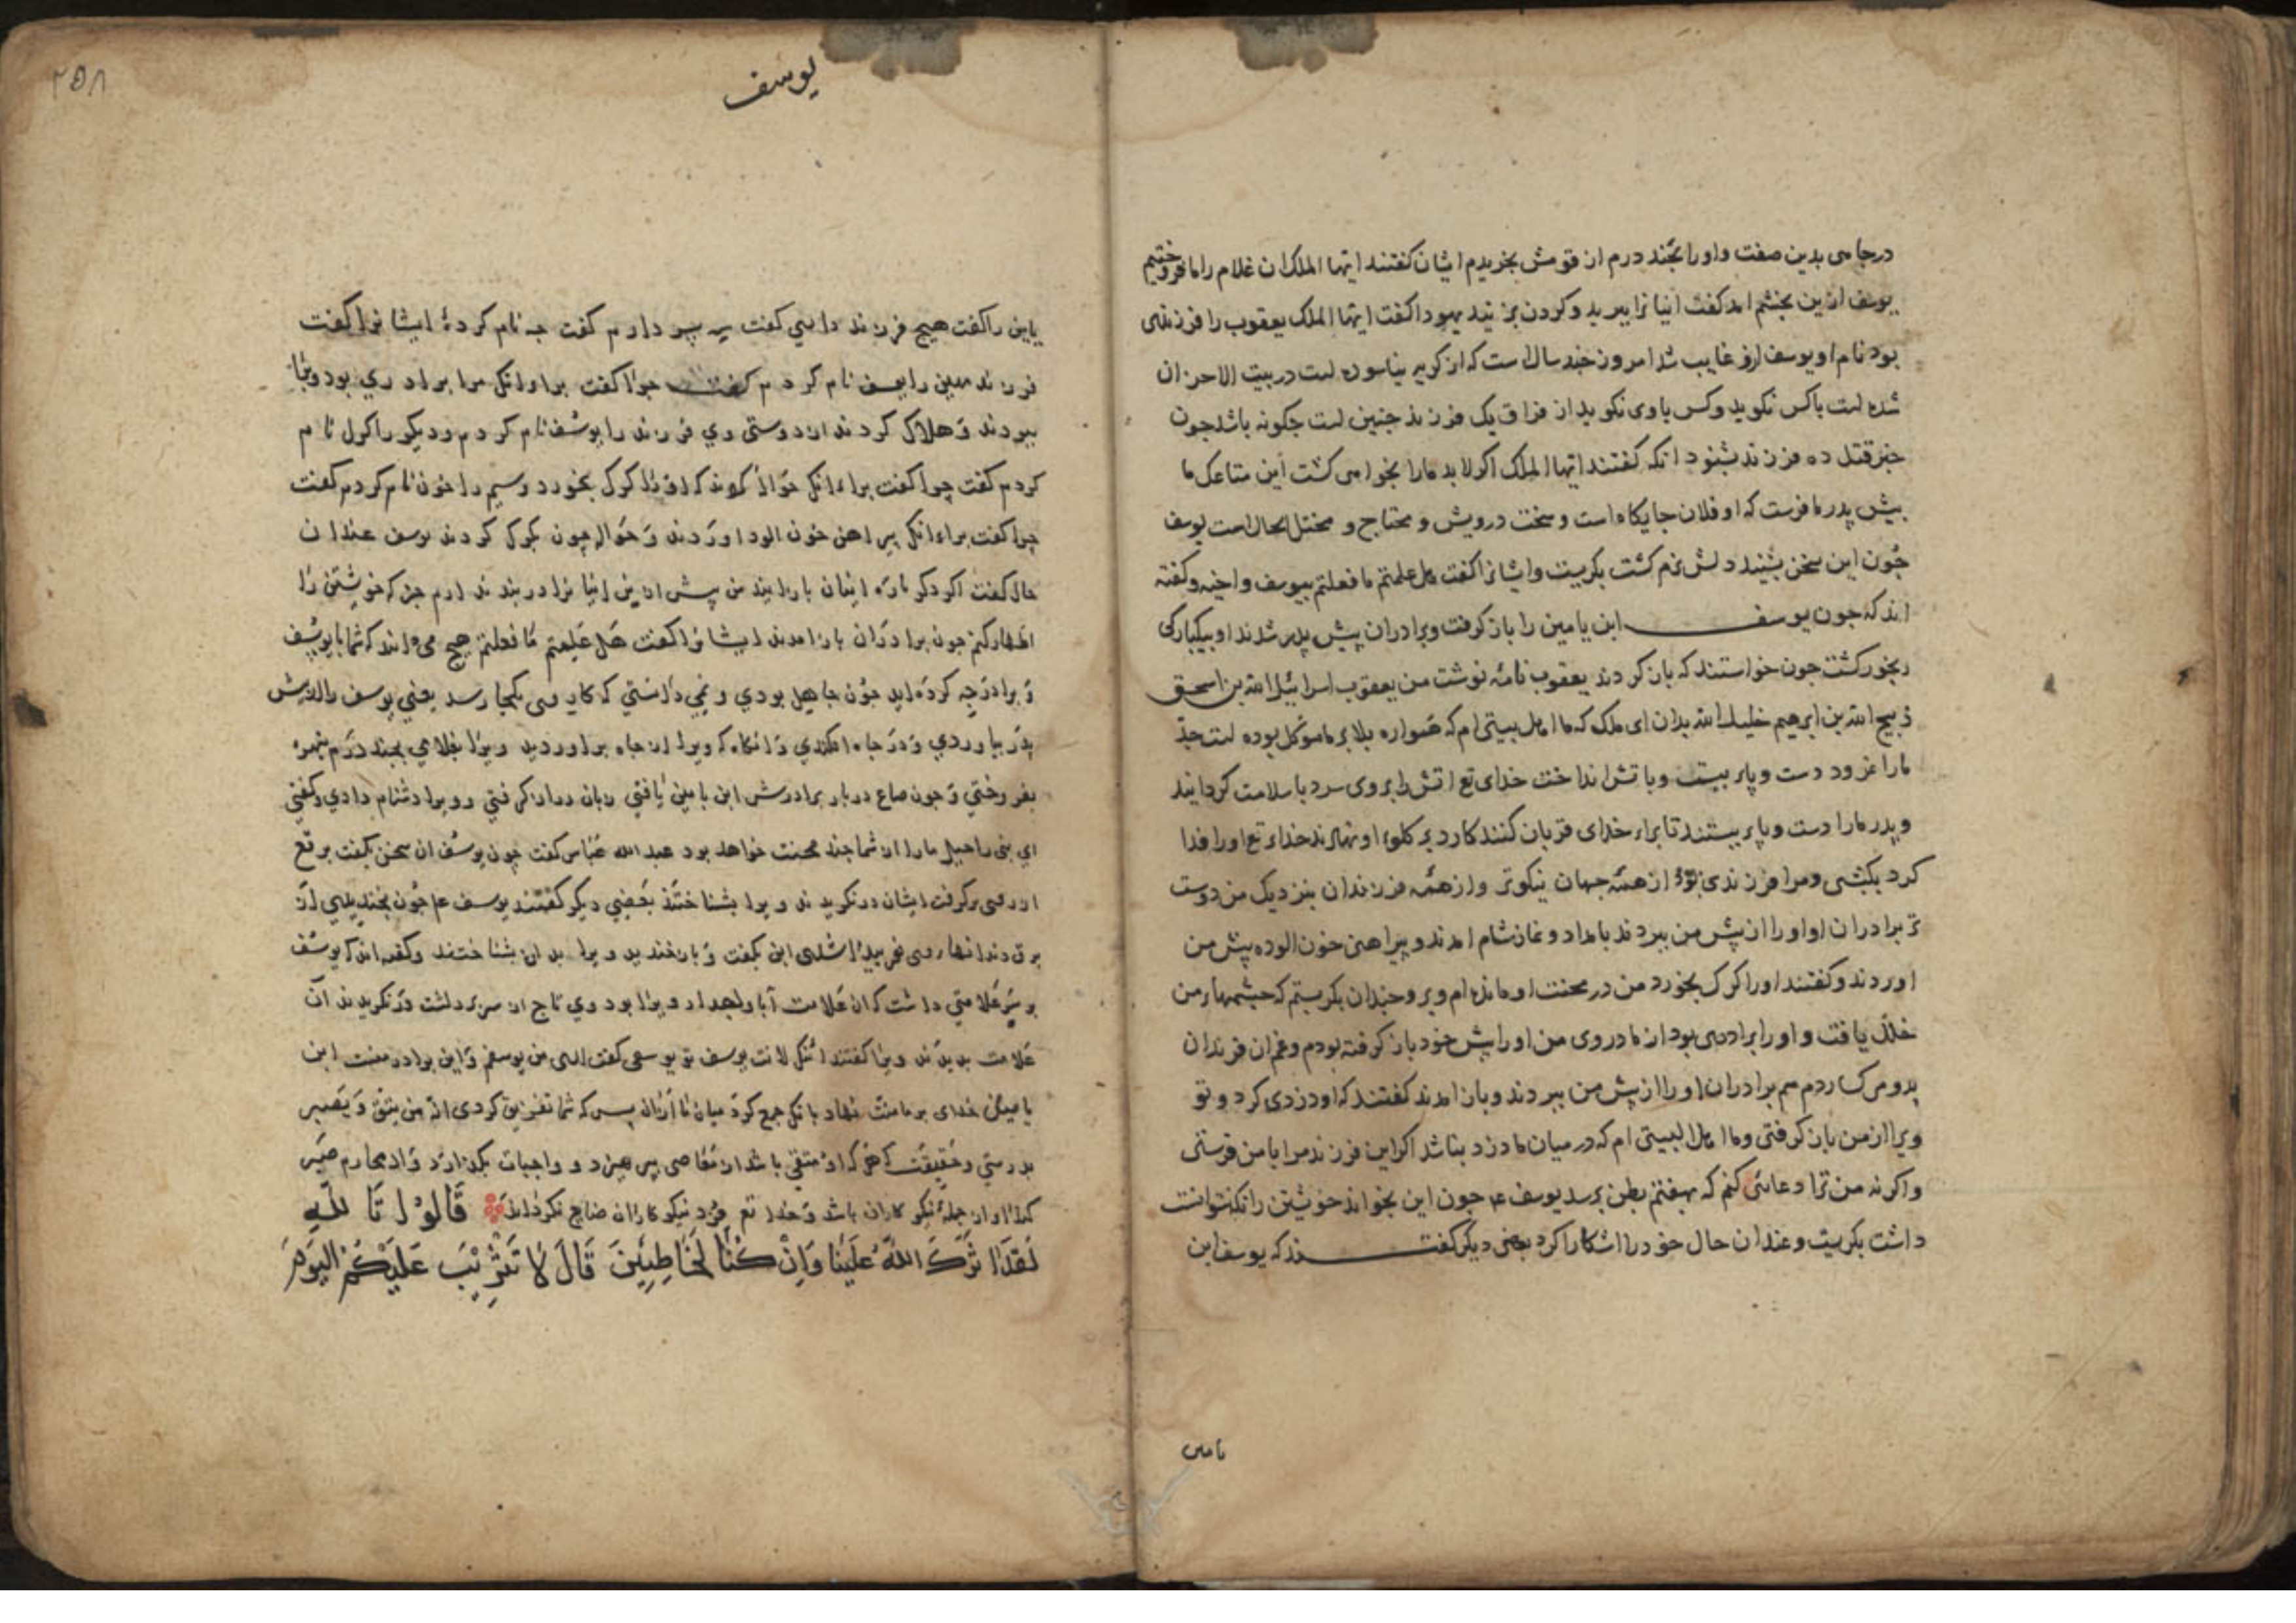 درجاهی بدین صفت و او را بچند درم از قومش بخریدم ایشان کفتند ایها الملک ان غلام را ما فروختیم
یوسف ازین بخشم امد کفت اینانرا ببرید و کردن بزنید یهودا کفت ایها الملک یعقوب را فرزندی
بود نام او یوسف ازو غایب شد امروز چند سال است که از کریه نیاسوده است در بیت الاحزان
شده است باکس نکوید وکس باوی نکوید از فراق یک فرزند جنین است جکونه باشد جون
خبر قتل ده فرزند بشنود انکه کفتند ایها الملک اکر لابد مارا بخواهی کشت این متاعک ما
بیش پدر ما فرست که او فلان جایکاه است و سخت درویش و محتاج و مختل الحال است یوسف
جون این سخن بشنید دلش نرم کشت بکریست و ایشانرا کفت هل علمتم ما فعلتم بیوسف واخیه و کفته
اند که جون یوسف ابن یامین را باز کرفت و برادران پیش پدر شدند او بیکبارکی
رنجور کشت جون خواستند که باز کردند یعقوب نامه نوشت من یعقوب اسرائیل الله بن اسحق
ذبیح الله بن ابرهیم خلیل الله بدان ای ملک که ما اهل بیتی ام که همواره بلا بر ما موکل بوده است جد
مارا نمرود دست و پای ببست و باتش انداخت خدای تع اتش را بروی سرد با سلامت کردانید
و پدر مارا دست و پای ببستند تا براء خدای قربان کنند کارد بر کلوء او نهادند خداء تع او را فدا
کرد بکبشی و مرا فرزندی بود از همه جهان نیکوتر و از همه فرزندان بنزدیک من دوست
تر برادران او او را از پیش من ببردند بامداد و نماز شام امدند و پیراهن خون الوده پیش من
اوردند و کفتند او را کرک بخورد من در محنت او مانده ام و برو چندان بکریستم که چشمهاء من
خلل یافت و او را برادری بود از مادر وی من او را پیش خود باز کرفته بودم و غم ان فرزندان
بدو می کساردم هم برادران او را از پیش من ببردند و باز امدند کفتند که او دزدی کرد و تو
ویرا از من باز کرفتی و ما اهل البیتی ام که در میان ما دزد نباشد اکر این فرزند مرا با من فرستی
و اکرنه من ترا دعائی کنم که بهفتم بطن برسد یوسف ع جون این بخواند خویشتن را نکه نتوانست
داشت بکریست و عند ان حال خود را اشکارا کرد بعضی دیکر کفتند که یوسف ابن
یامین
۲۵۸
یوسف
یامین را کفت هیچ فرزند داری کفت سه پسر دارم کفت جه نام کردهٔ ایشانرا کفت
فرزند مهین را یوسف نام کردم کفت چرا کفت براء انکه مرا برادری بود ویرا
ببردند و هلاک کردند از دوستی وی فرزند را یوسف نام کردم و دیکر را کرک نام
کردم کفت چرا کفت براء انکه حواله کردند که او را کرک بخورد و سیم را خون نام کردم کفت
چرا کفت براء انکه پیراهن خون الود اوردند و حواله چون بکرک کردند یوسف عند ان
حال کفت اکر دکر باره اینان بازایند من پیش ازین اینانرا در بند ندارم جز که خویشتن را
اظهار کنم جون برادران باز امدند ایشانرا کفت هل علمتم ما فعلتم هیچ می دانید که شما با یوسف
و برادرش چه کرده اید جون جاهل بودی و نمی دانستی که کار وی بکجا رسد یعنی یوسف را از پیش
پدر بیاوردی و در جاه افکندی و انکاه که ویرا از جاه براوردید ویرا بغلامی بچند درم نبهره
بفروختی و جون صاع در بار برادرش ابن یامین یافتی زبان دراز کرفتی و ویرا دشنام دادی و کفتی
ای بنی راحیل مارا از شما چند محنت خواهد بود عبد الله عباس کفت چون یوسف ان سخن بکفت برقع
از روی برکرفت ایشان درنکریدند ویرا بشناختند بعضی دیکر کفتند یوسف ع جون بخندیدی از
یوسف
بر سر علامتی داشت که ان علامت آبا و اجداد ویرا بود وی تاج از سر برداشت درنکریدند آن
علامت بدیدند ویرا کفتند ائنک لانت یوسف تو یوسفی کفت اری من یوسفم و این برادر منست ابن
یامین خدای بر ما منت نهاد بانکه جمع کرد میان ما ازان پس که شما تفریق کردی انه من یتق و یصبر
بدرستی و حقیقت که هر که او متقی باشد از معاصی پرهیزد و واجبات بکذارد و از محارم صبر
کند او از جمله نیکو کاران باشد و خدا تع مزد نیکو کاران ضایع نکرداند قَالُوا تَاللهِ
لَقَدْ اٰثَرَكَ اللهُ عَلَيْنَا وَاِنْ كُنَّا لَخَاطِئِينَ قَالَ لَا تَثْرِيْبَ عَلَيْكُمُ الْيَوْمَ